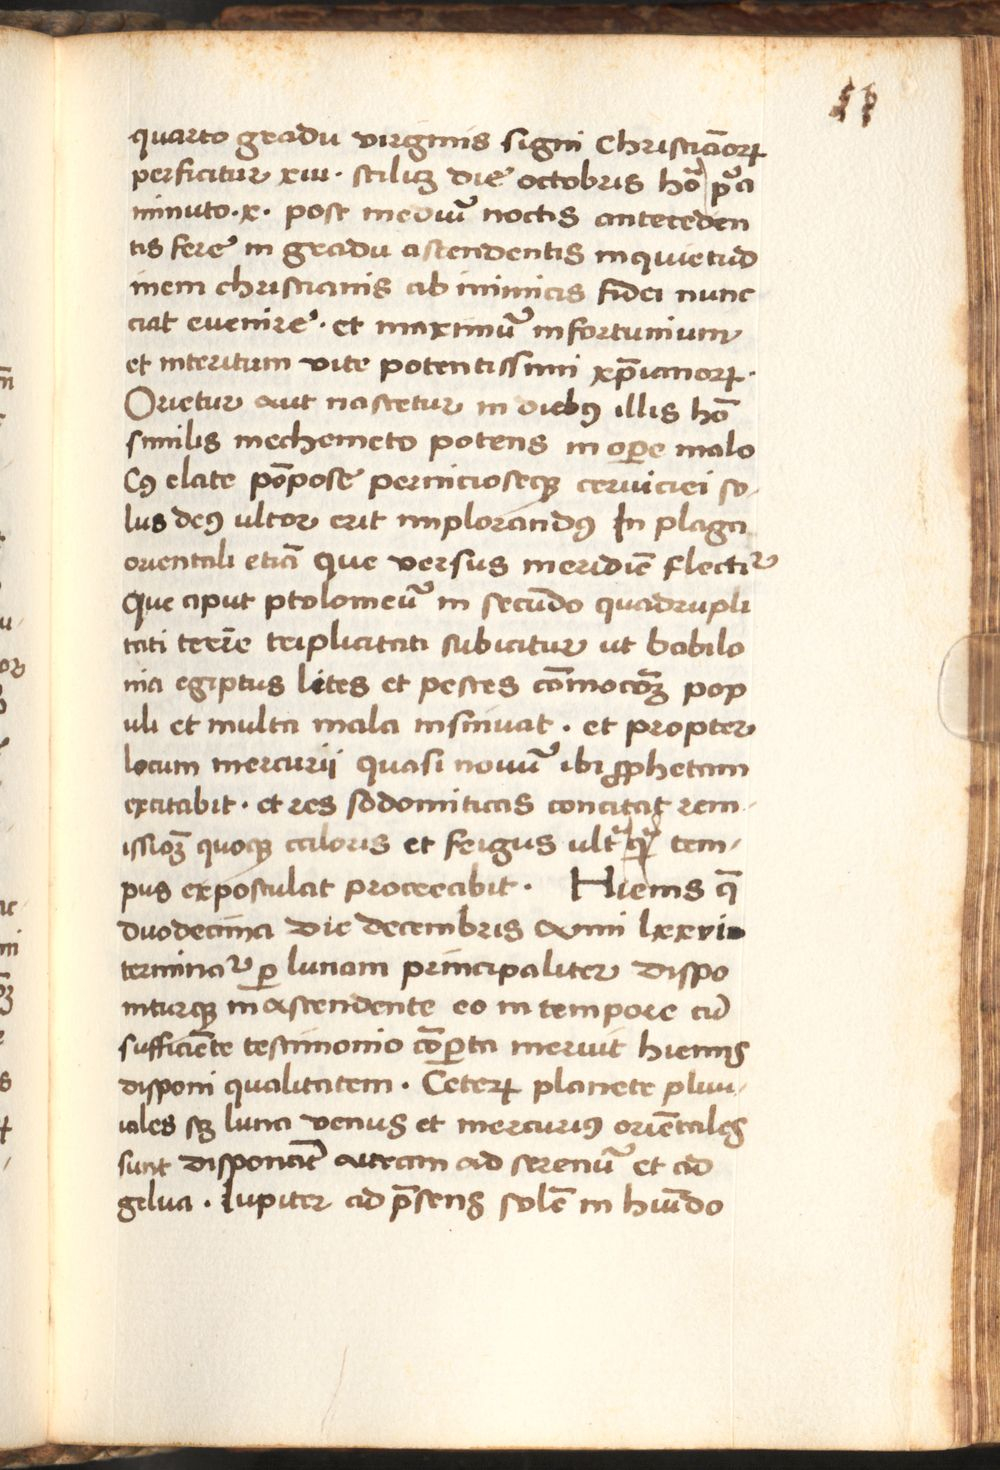 11
quarto gradu virginis signi Christiãoꝝ
perficitur xiii· scilicꝫ die octobris hoꝛ̃ p̃a
minuto·x· post mediũ noctis anteceden
tis fere in gradu ascendentis inquietud
inem christianis ab inimicis fidei nunc
ciat evenire· et maximũ infortunium
et interitum vite potentissimi xp̃ianoꝝ·
Orietur aut nascetur in diebꝰ illis hõ
similis mechemeto potens in oꝑe malo
Cꝰ elate põpose pernicioseqꝫ cerviciei so-
lus deꝰ ultor erit implorandꝰ In plaga
orientali etiã que versus meridiẽ flectiᷣ
Que aput ptolomeũ in secũdo quadrupli
tati terrẽ triplicitati subicitur ut babilo
nia egiptus lites et pestes cõmocõꝫ pop
uli et multa mala insinuat · et propter
locum mercurii quasi novũ ibi ꝓphetam
excitabit · et res sodomiticas concitat rem-
issioꝫ quoqꝫ caloris et frigus ultᵃ q̃ tem-
pus expostulat procreabit · Hiems q̃
duodecima die decembris anni lxxvi
terminaᷣ ꝑ lunam principaliter dispo
niturqꝫ in ascendente eo in tempore cũ
sufficiẽte testimonio cõꝑta meruit hiemis
disponi qualitatem · Ceteꝝ planete pluu-
iales sꝫ luna venus et mercuriꝰ oriẽtales
sunt disponãt auram ad serenũ et ad
gelua · Iupiter ad p̃sens solẽ in hũido